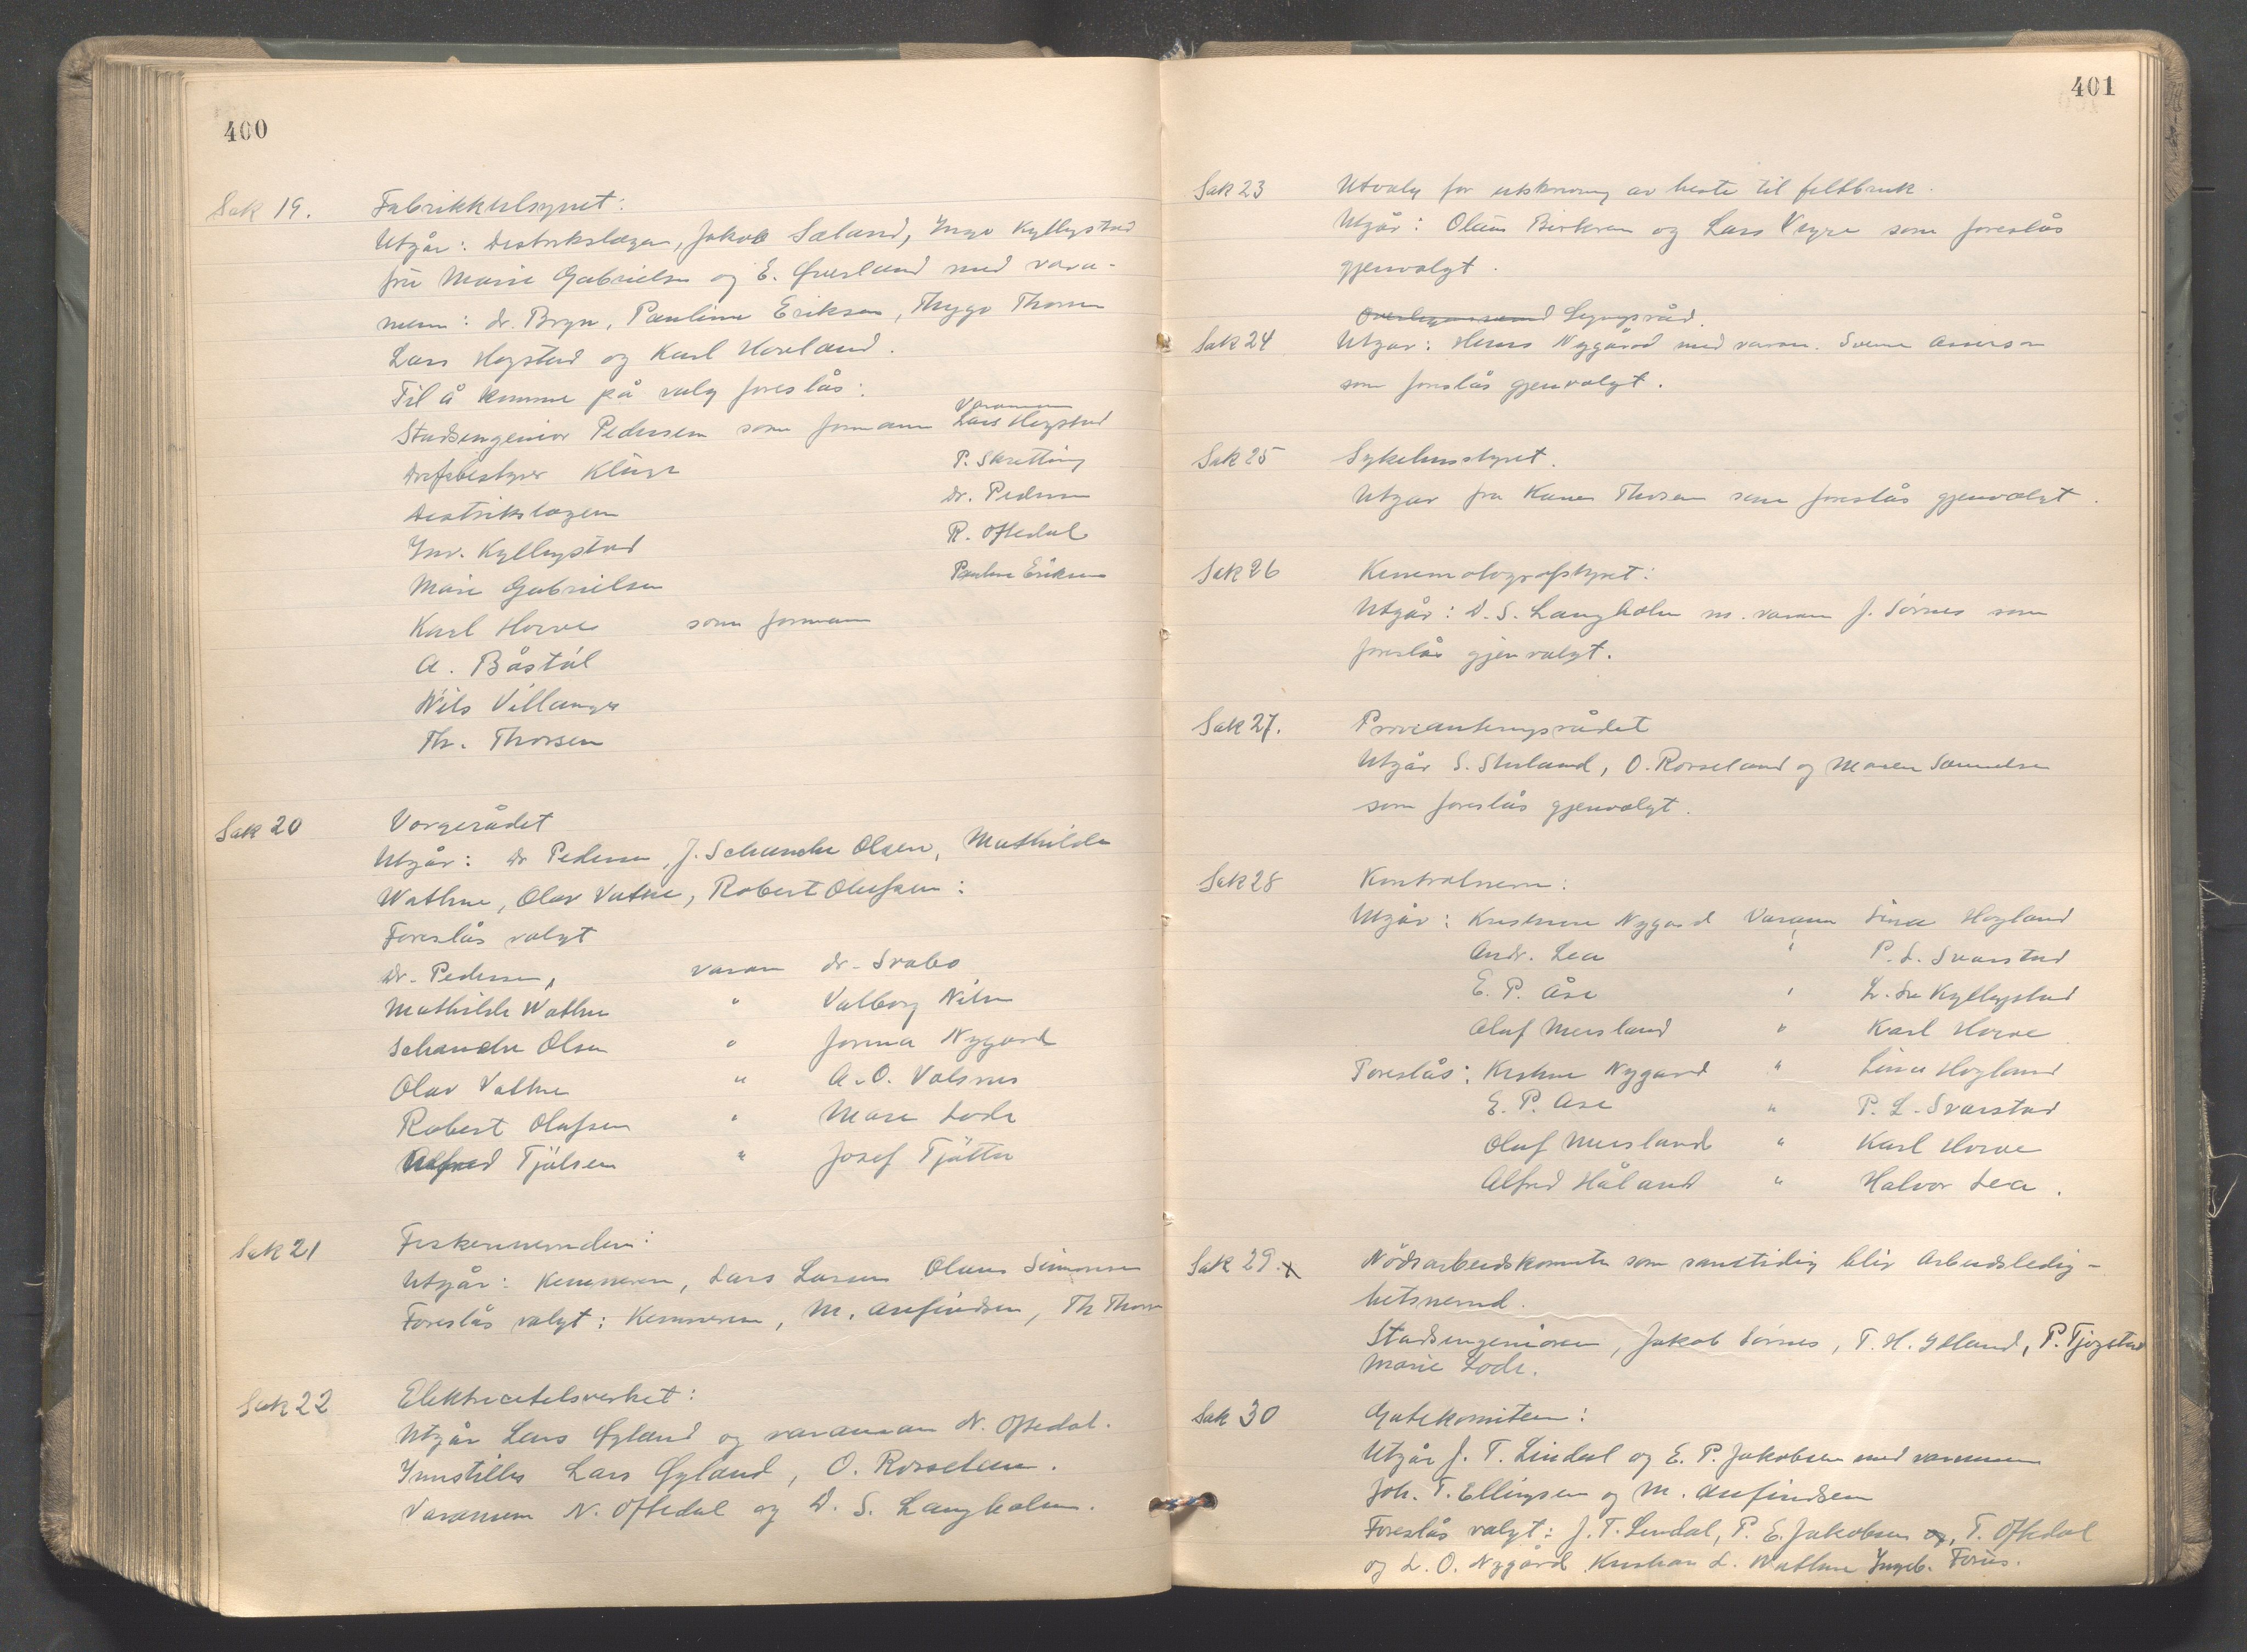 400
Sak 19. Fabrikktilsynet:
Utgår: Distriktslægen, Jakob Sæland, Ingv Kyllingstad
fru Marie Gabrielsen og E. Øverland med vara-
menn: dr. Bryn, Pauline Eriksen, Thygo Thorsen
Lars Hogstad og Karl Hovland.
Til å komme på valg foreslås:
Varamenn
Stadsingeniør Pedersen som formann Lars Hogstad
Driftsbestyrer Kluge P. Skretting
Distriktslægen Dr. Pedersen
Ingv. Kyllingstad R. Oftedal
Marie Gabrielsen Pauline Eriksen
Karl Horve som formann
A. Båstøl
Nils Villanger
Th. Thorsen
Sak 20 Vergerådet
Utgår: Dr Pedersen, J. Schanche Olsen, Mathilde
Wathne, Olav Vatne, Robert Olufsen:
Foreslås valgt
Dr. Pedersen, varam dr. Svabo
Mathilde Wathne " Valborg Nilsen
Schanche Olsen " Jorina Nygard
Olav Vatne " A. O. Valsnes
Robert Olufsen " Marie Lode
Alfred Tjålsen " Josef Tjåtta
Sak 21 Fiskenemnden:
Utgår: Kemneren, Lars Larsen Olaus Simonsen
Foreslås valgt: Kemneren, M. Arefindsen, Th Thorsen
Sak 22 Elektricitetsverket:
Utgår Lars Øgland og varamann N. Oftedal.
Innstilles Lars Øgland, O. Rosseland.
Varamenn N. Oftedal og D. S. Langholm.
401
Sak 23 Utvalg for utskrivning av heste til feltbruk.
Utgår: Olaus Birkrem og Lars Veyre som foreslås
gjenvalgt.
Ligningsråd.
Sak 24 Utgår: Hans Nygård med varam. Svenn Asserson
som foreslås gjenvalgt.
Sak 25 Sykehusstyret.
Utgår fru Karen Thorsen som foreslås gjenvalgt.
Sak 26 Kinematografstyret:
Utgår: D. S. Langholm m. varam J. Sörnes som
foreslås gjenvalgt.
Sak 27. Provianteringsrådet
Utgår S. Stusland, O. Rosseland og Maren Samuelsen
som foreslås gjenvalgt.
Sak 28 Kontrolnemn:
Utgår: Kristine Nygard Varam Lina Hogland
Andr. Lea " P. L. Svarstad
E. P. Åse " L. Kyllingstad
Oluf Mersland " Karl Horve
Foreslås: Kristine Nygard " Lina Hogland
E. P. Åse " P. L. Svarstad
Oluf Mersland " Karl Horve
Alfred Håland " Halvor Lea.
Sak 29. x Nödsarbeidskomite som samtidig blir Arbeidsledig-
hetsnemd.
Stadsingeniøren, Jakob Sörnes, T. H. Ueland, P. Tjogstad
Marie Lode.
Sak 30 Gatekomiteen:
Utgår J. T. Lindal og E. P. Jakobsen med varamenn
Joh. T. Ellingsen og M. Arefindsen
Foreslås valgt: J. T. Lindal, P. E. Jakobsen, T. Oftedal
og L. O. Nygård Kristian L. Wathne Ingeb. Forus.